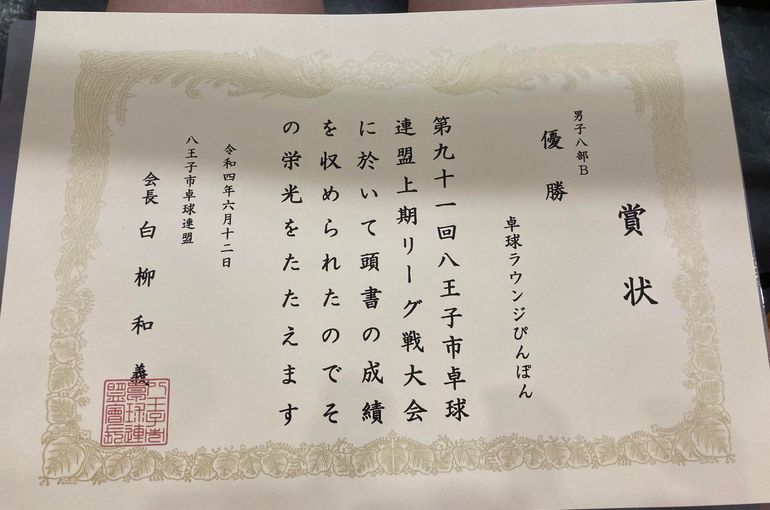 賞状
男子八部B
優勝
卓球ラウンジぴんぽん
第九十一回八王子市卓球
連盟上期リーグ戦大会
に於いて頭書の成績
を収められたのでそ
の栄光をたたえます
令和四年六月十二日
八王子市卓球連盟
会長 白柳和義